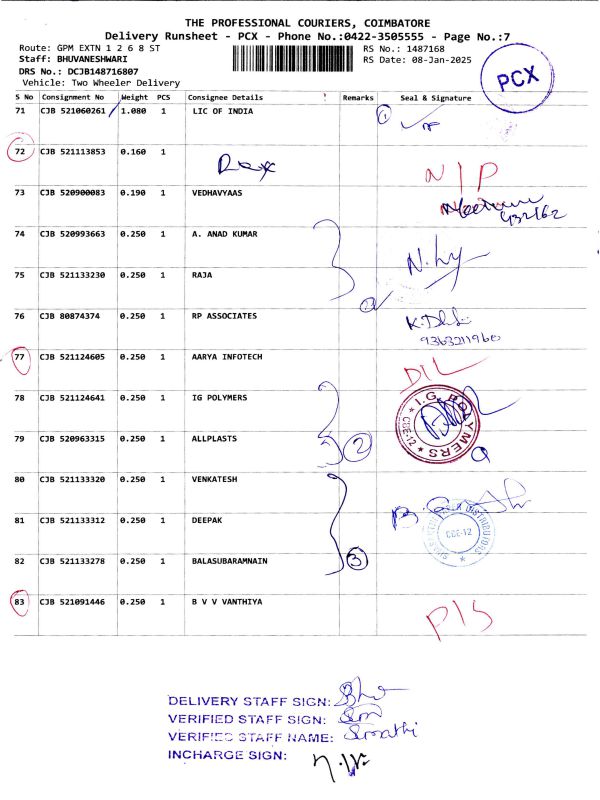 THE PROFESSIONAL COURIERS, COIMBATORE
Delivery Runsheet - PCX - Phone No.:0422-3505555 - Page No.:7
Route: GPM EXTN 1 2 6 8 ST RS No.: 1487168
Staff: BHUVANESHWARI RS Date: 08-Jan-2025
DRS No.: DCJB148716807
Vehicle: Two Wheeler Delivery
PCX
S No Consignment No Weight PCS Consignee Details Remarks Seal & Signature
71 CJB 521060261 1.080 1 LIC OF INDIA 1
72 CJB 521113853 0.160 1 N/P
73 CJB 520900083 0.190 1 VEDHAVYAAS
74 CJB 520993663 0.250 1 A. ANAD KUMAR
75 CJB 521133230 0.250 1 RAJA 2
76 CJB 80874374 0.250 1 RP ASSOCIATES
77 CJB 521124605 0.250 1 AARYA INFOTECH D/L
78 CJB 521124641 0.250 1 IG POLYMERS I.G. POLYMERS CBE-12
79 CJB 520963315 0.250 1 ALLPLASTS 2
80 CJB 521133320 0.250 1 VENKATESH
81 CJB 521133312 0.250 1 DEEPAK DISTRIBUTORS CBE-12
82 CJB 521133278 0.250 1 BALASUBARAMNAIN 3
83 CJB 521091446 0.250 1 B V V VANTHIYA
DELIVERY STAFF SIGN:
VERIFIED STAFF SIGN:
VERIFIED STAFF NAME: Sumathi
INCHARGE SIGN: